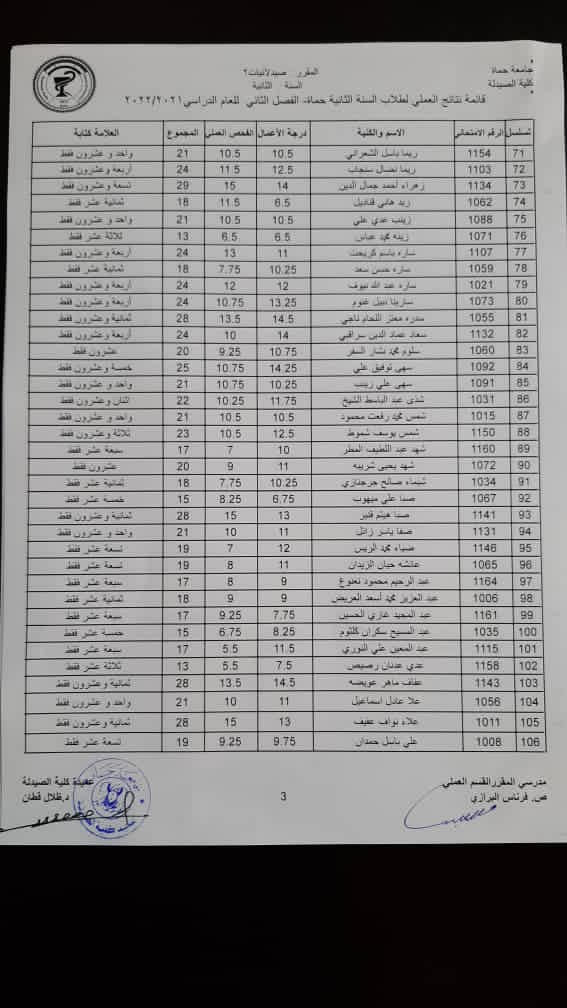 جامعة حماة
كلية الصيدلة
المقرر صيدلانيات٢
السنة الثانية
قائمة نتائج العملي لطلاب السنة الثانية حماة- الفصل الثاني للعام الدراسي ٢٠٢٢/٢٠٢١
تسلسل الرقم الامتحاني الاسم والكنية درجة الأعمال الفحص العملي المجموع العلامة كتابة
71 1154 ريما باسل الشعراني 10.5 10.5 21 واحد و عشرون فقط
72 1103 ريما نضال سنجاب 12.5 11.5 24 أربعة و عشرون فقط
73 1134 زهراء أحمد جمال الدين 14 15 29 تسعة و عشرون فقط
74 1062 زيد هاني قناديل 6.5 11.5 18 ثمانية عشر فقط
75 1088 زينب عدي علي 10.5 10.5 21 واحد و عشرون فقط
76 1071 زينه محمد عباس 6.5 6.5 13 ثلاثة عشر فقط
77 1107 ساره باسم كريحت 11 13 24 أربعة و عشرون فقط
78 1059 ساره حسن سعد 10.25 7.75 18 ثمانية عشر فقط
79 1021 ساره عبد الله نيوف 12 12 24 أربعة و عشرون فقط
80 1073 سارينا نبيل غنوم 13.25 10.75 24 أربعة و عشرون فقط
81 1055 سدره معتز اللحام ناجي 14.5 13.5 28 ثمانية و عشرون فقط
82 1132 سعاد عماد الدين سراقبي 14 10 24 أربعة و عشرون فقط
83 1060 سلوم محمد بشار السفر 10.75 9.25 20 عشرون فقط
84 1092 سهى توفيق علي 14.25 10.75 25 خمسة و عشرون فقط
85 1091 سهى علي زينب 10.25 10.75 21 واحد و عشرون فقط
86 1031 شذى عبد الباسط الشيخ 11.75 10.25 22 اثنان و عشرون فقط
87 1015 شمس محمد رفعت محمود 10.5 10.5 21 واحد و عشرون فقط
88 1150 شمس يوسف شموط 12.5 10.5 23 ثلاثة و عشرون فقط
89 1160 شهد عبد اللطيف المطر 10 7 17 سبعة عشر فقط
90 1072 شهد يحيى شربيه 11 9 20 عشرون فقط
91 1034 شيماء صالح جرجنازي 10.25 7.75 18 ثمانية عشر فقط
92 1067 صبا علي ميهوب 6.75 8.25 15 خمسة عشر فقط
93 1141 صبا هيثم قنبر 13 15 28 ثمانية و عشرون فقط
94 1131 صفا ياسر زائل 11 10 21 واحد و عشرون فقط
95 1146 ضياء محمد الريس 12 7 19 تسعة عشر فقط
96 1065 عائشه حيان الزيدان 11 8 19 تسعة عشر فقط
97 1164 عبد الرحيم محمود نعنوع 9 8 17 سبعة عشر فقط
98 1006 عبد العزيز محمد أسعد العريض 9 9 18 ثمانية عشر فقط
99 1161 عبد المجيد غازي الحسين 7.75 9.25 17 سبعة عشر فقط
100 1035 عبد المسيح سكران كلثوم 8.25 6.75 15 خمسة عشر فقط
101 1115 عبد المعين علي النوري 11.5 5.5 17 سبعة عشر فقط
102 1158 عدي عدنان رصيص 7.5 5.5 13 ثلاثة عشر فقط
103 1143 عفاف ماهر عويضه 14.5 13.5 28 ثمانية و عشرون فقط
104 1056 علا عادل اسماعيل 11 10 21 واحد و عشرون فقط
105 1011 علاء نواف عفيف 13 15 28 ثمانية و عشرون فقط
106 1008 علي باسل حمدان 9.75 9.25 19 تسعة عشر فقط
مدرسي المقرر القسم العملي
ص. فرناس البرازي
3
عميدة كلية الصيدلة
د.ظلال قطان